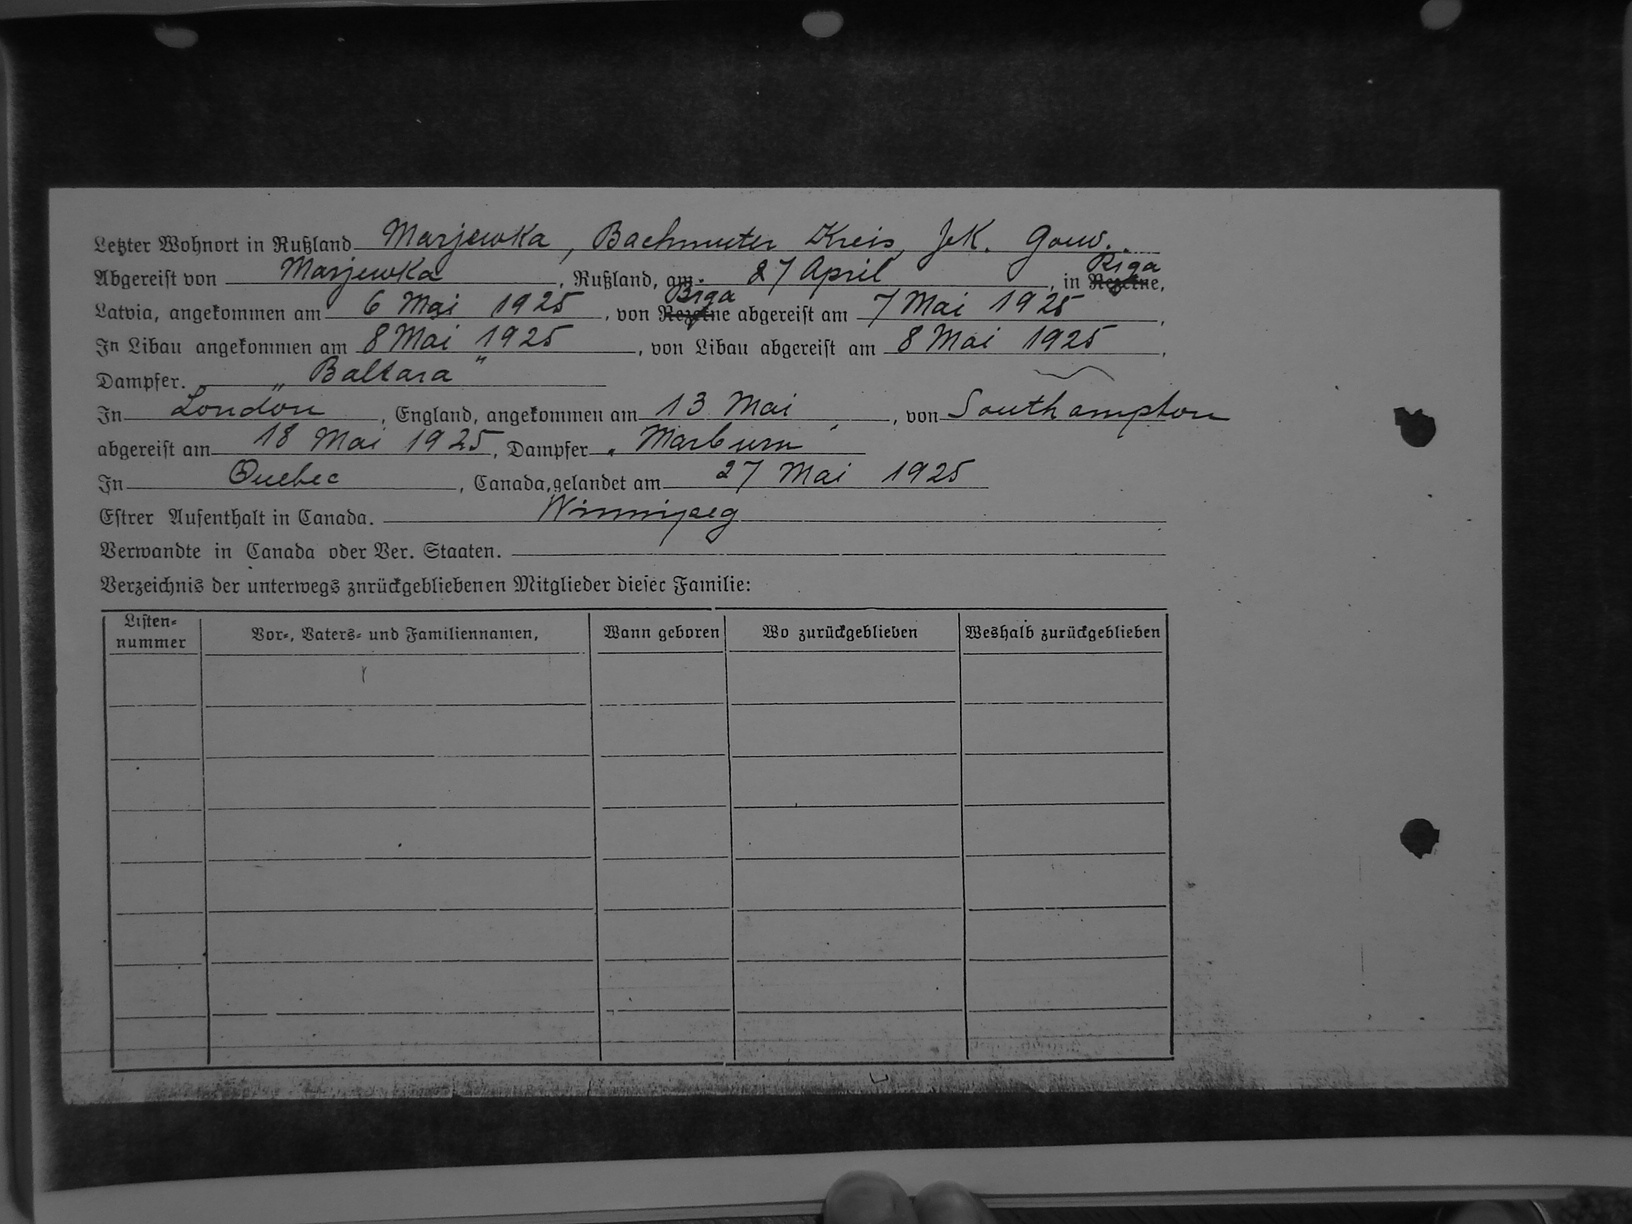 Letzter Wohnort in Rußland Marjewka, Bachmuter Kreis, Jek. Gouv.
Abgereist von Marjewka, Rußland, am 27 April, in Rezekne, Riga
Latvia, angekommen am 6 Mai 1925, von Rezekne Riga abgereist am 7 Mai 1925,
In Libau angekommen am 8 Mai 1925, von Libau abgereist am 8 Mai 1925,
Dampfer. „Baltara"
In London, England, angekommen am 13 Mai, von Southampton
abgereist am 18 Mai 1925, Dampfer „Marburn"
In Quebec, Canada, gelandet am 27 Mai 1925
Estrer Aufenthalt in Canada. Winnipeg
Verwandte in Canada oder Ver. Staaten.
Verzeichnis der unterwegs znrückgebliebenen Mitglieder dieser Familie:
Listen-nummer Vor-, Vaters- und Familiennamen, Wann geboren Wo zurückgeblieben Weshalb zurückgeblieben